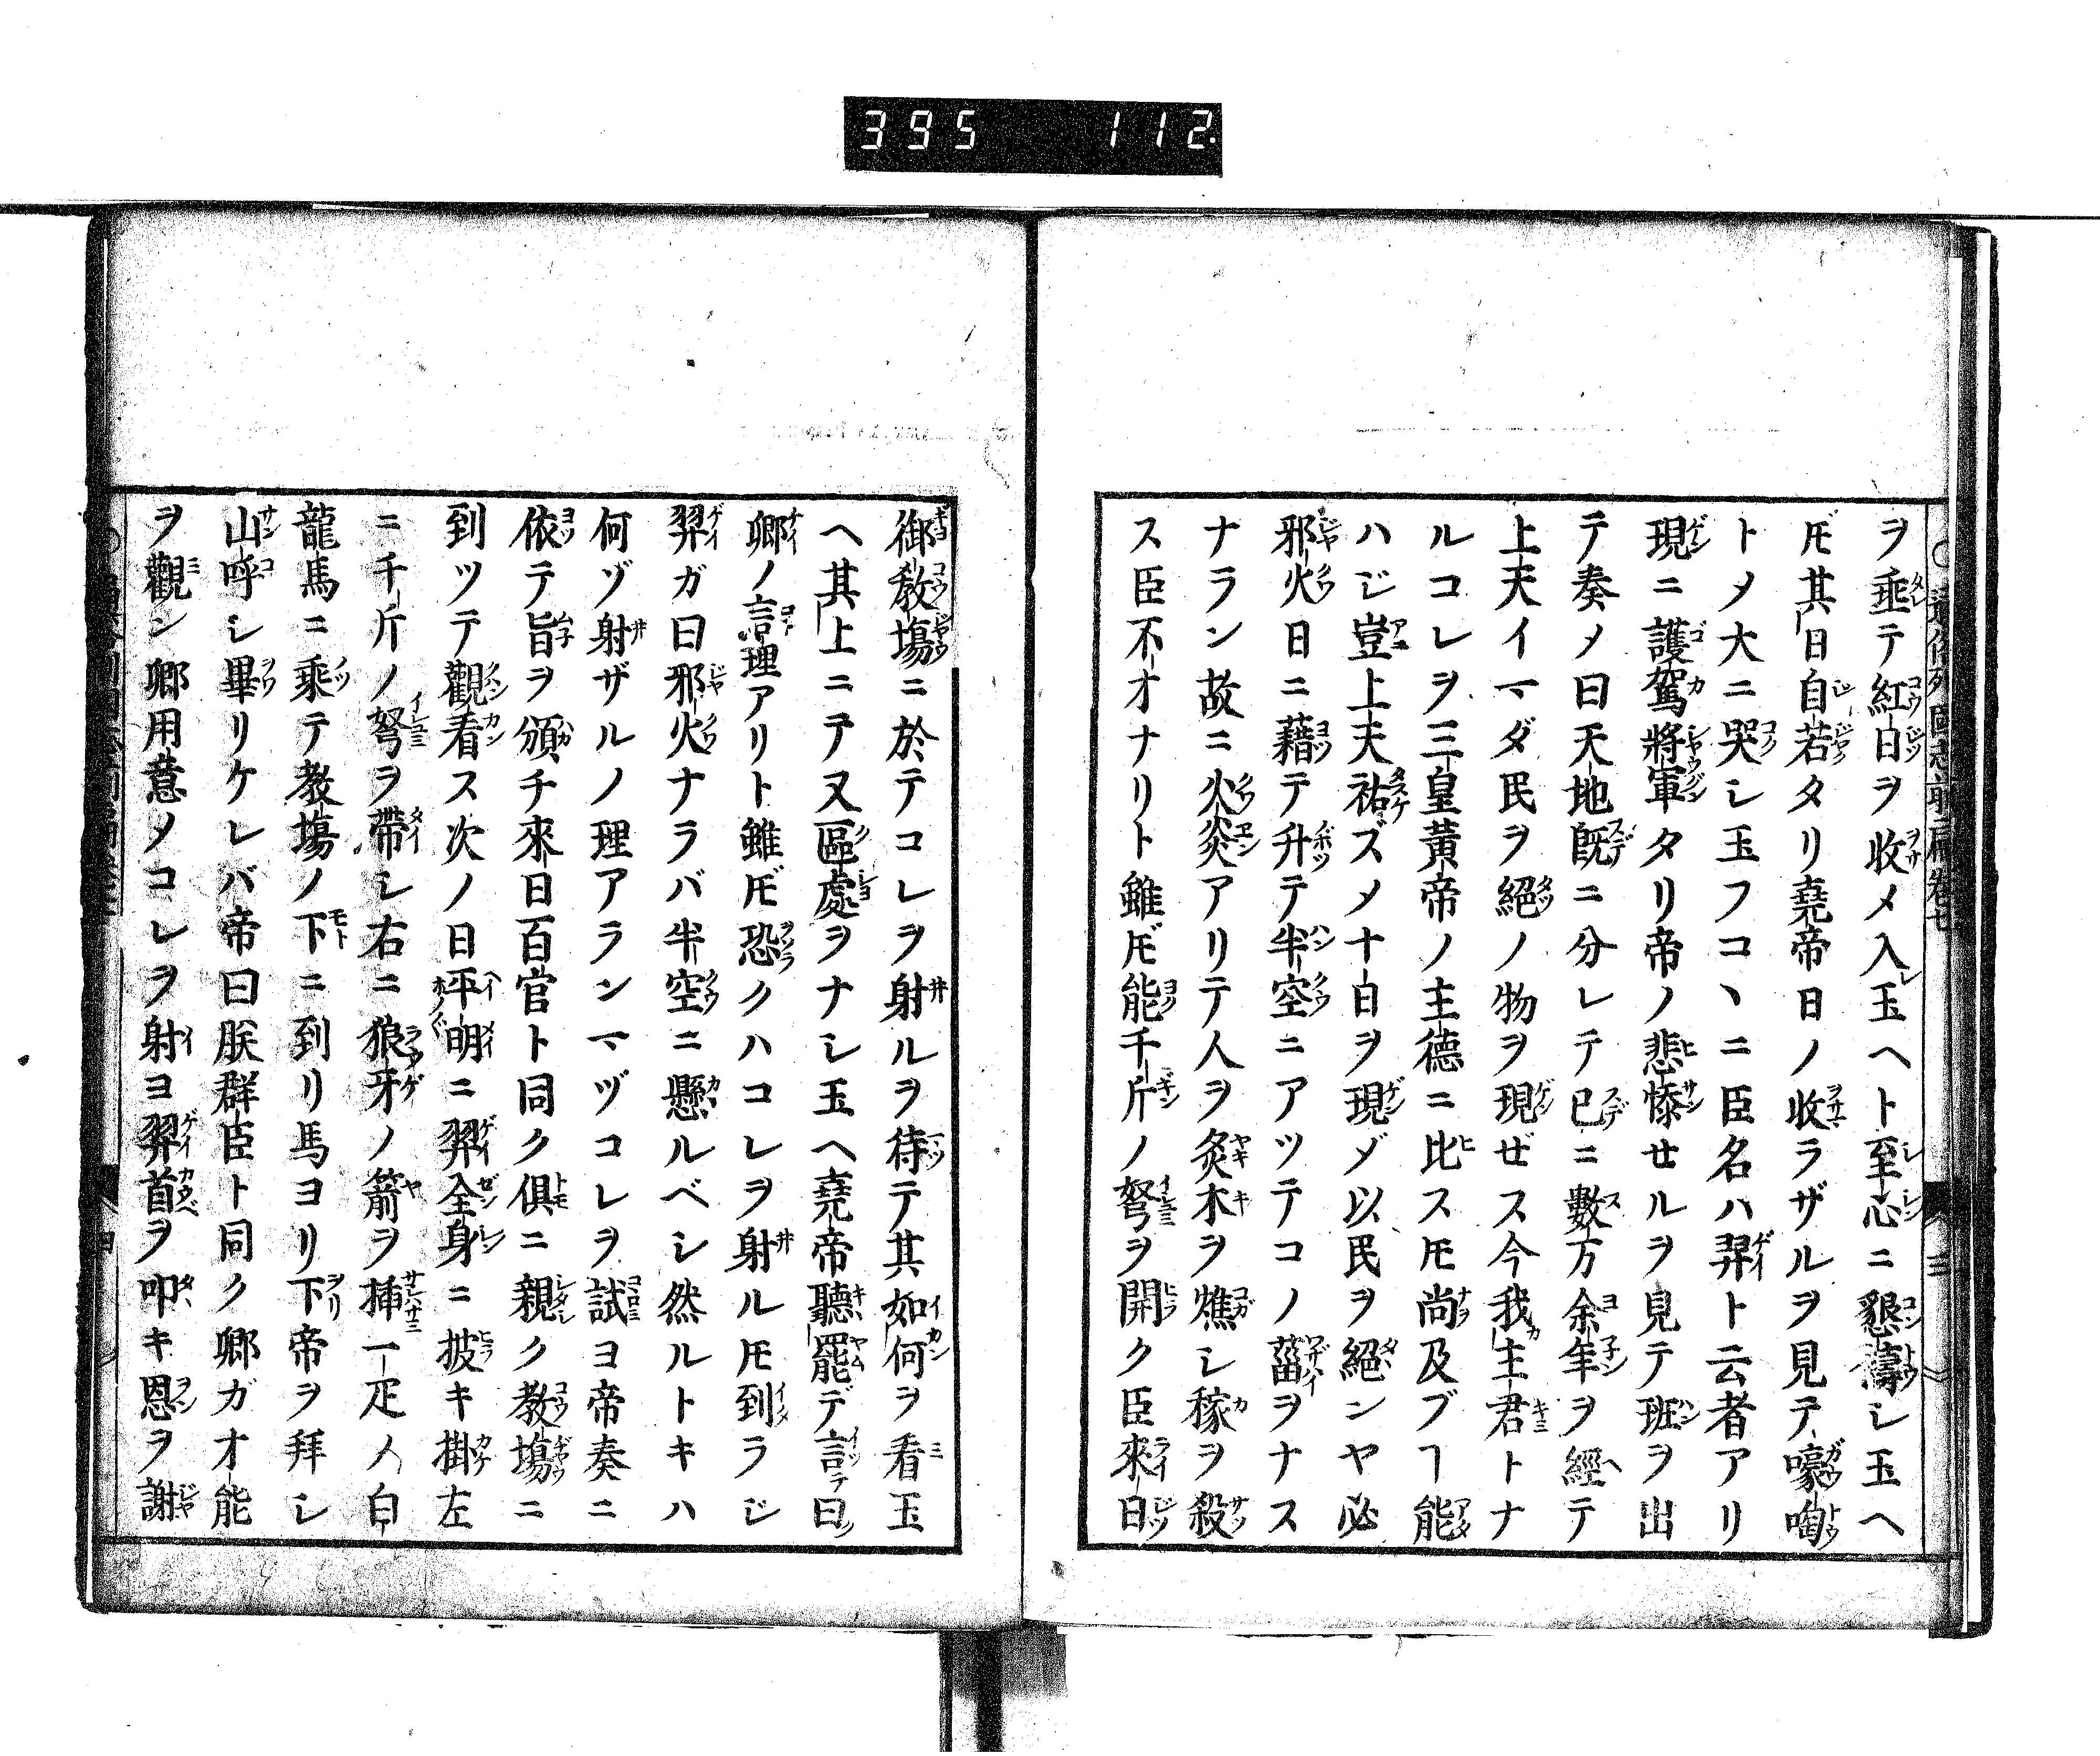 395 112
ヲ垂テ紅日ヲ收メ入玉ヘト至心ニ懇禱シ玉ヘ
𪜈其日自若タリ堯帝日ノ收ラザルヲ見テ嚎啕
トメ大ニ哭シ玉フコヽニ臣名ハ羿ト云者アリ
現ニ護駕將軍タリ帝ノ悲慘せルヲ見テ班ヲ出
テ奏メ曰天地既ニ分レテ已ニ數万余年ヲ經テ
上天イマダ民ヲ絕ノ物ヲ現ぜス今我主君トナ
ルコレヲ三皇黃帝ノ主德ニ比スモ尚及ブヿ能
ハジ豈上天祐ズメ十日ヲ現ゾ以民ヲ絕ンヤ必
邪火日ニ藉テ升テ半空ニアツテコノ菑ヲナス
ナラン故ニ火炎アリテ人ヲ炙木ヲ燋シ稼ヲ殺
ス臣不才ナリト雖𪜈能千斤ノ弩ヲ開ク臣來日
御教塲ニ於テコレヲ射ルヲ待テ其如何ヲ看玉
ヘ其上ニテ又區處ヲナシ玉ヘ堯帝聽罷デ言テ曰
卿ノ言理アリト雖𪜈恐クハコレヲ射ルモ到ラジ
羿ガ曰邪火ナラバ半空ニ懸ルベシ然ルトキハ
何ゾ射ザルノ理アランマヅコレヲ試ヨ帝奏ニ
依テ旨ヲ頒チ來日百官ト同ク俱ニ親ク教塲ニ
到ツテ觀看ス次ノ日平明ニ羿全身ニ披キ掛左
ニ千斤ノ弩ヲ帶シ右ニ狼牙ノ箭ヲ挿一疋ノ白
龍馬ニ乘テ教塲ノ下ニ到リ馬ヨリ下帝ヲ拜シ
山呼シ畢リケレバ帝曰朕群臣ト同ク卿ガオ能
ヲ觀ン卿用意メコレヲ射ヨ羿首ヲ叩キ恩ヲ謝